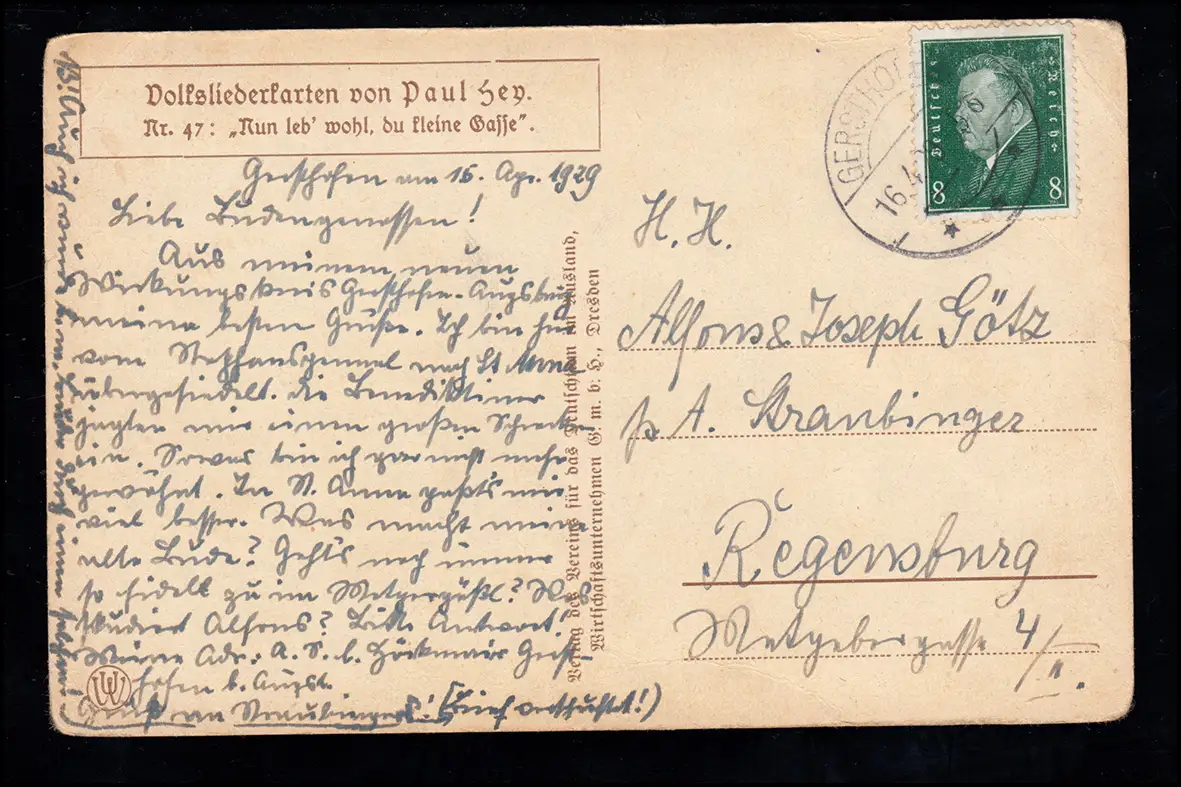 Volksliederkarten von Paul Hey.
Nr. 47: „Nun leb' wohl, du kleine Gasse“.
Gersthofen am 16. Apr. 1929
Liebe Budengenossen!
Aus meinem neuen
Wirkungskreis Gersthofen-Augsburg
meine besten Grüße. Ich bin hier
vom nach St. Anna
übergesiedelt. Die Benediktiner
jagten mir einen großen Schrecken
ein. Sowas bin ich gar nicht mehr
gewöhnt. In St. Anna paßt's mir
viel besser. Was macht meine
alte Bude? Geht's noch immer
so fidel zu im Metzgergäßl? Was
studiert Alfons? Bitte Antwort!
Meine Adr.: A. S. b. Gerst-
hofen b. Augsb.
Gruß an Straubingers! (Brief !)
NB! Auch ich
UVV
Verlag des Vereins für das Deutschtum im Ausland,
Wirtschaftsunternehmen G. m. b. H., Dresden
GERSTHOF
16.4
Deutsches Reich
8 8
H. H.
Alfons & Joseph Götz
p. A. Straubinger
Regensburg
Metzgergasse 4/II.